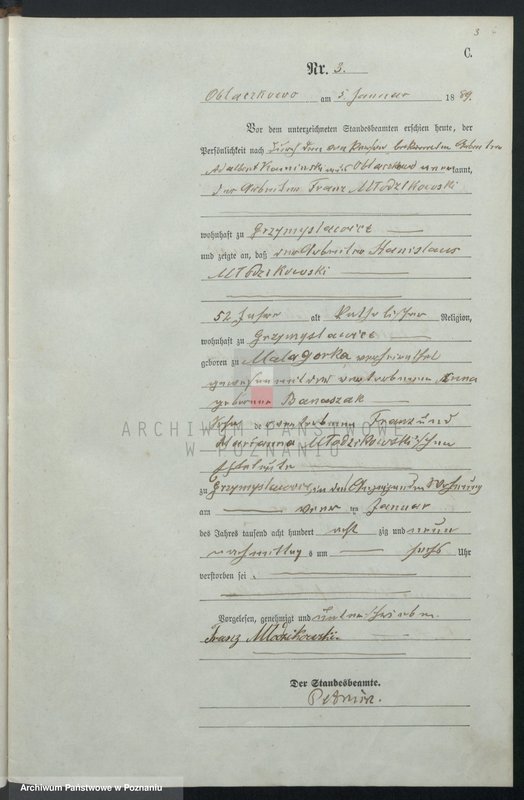 3
C.
Nr. 3.
Oblaczkowo am 5 Januar 1889.
Vor dem unterzeichneten Standesbeamten erschien heute, der
Persönlichkeit nach durch den von Person bekannten Arbeiter
Adalbert aus Oblaczkowo anerkannt,
der Arbeiter Franz Mlodzikowski
wohnhaft zu Grzymyslawice
und zeigte an, daß der Arbeiter Stanislaus
Mlodzikowski
52 Jahre alt katholischer Religion,
wohnhaft zu Grzymyslawice
geboren zu Malagorka verheirathet
gewesen mit der verstorbenen Anna
geborene Banaszak
Sohn der verstorbenen Franz und
Marianna Mlodzikowskischen
Eheleute
zu Grzymyslawice, in des Anzeigenden Wohnung
am ten Januar
des Jahres tausend acht hundert acht zig und neun
nachmittags um sechs Uhr
verstorben sei.
Vorgelesen, genehmigt und unterschrieben
Franz Młodzikowski
Der Standesbeamte.
ARCHIWUM PAŃSTWOWE
W POZNANIU
Archiwum Państwowe w Poznaniu